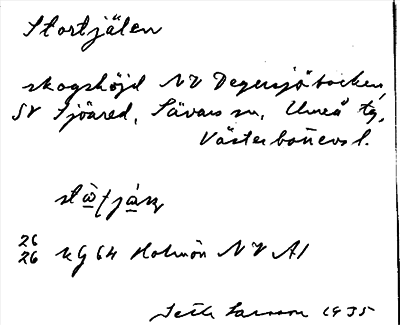 Stortjälen
skogshöjd NV Degersjöbacken,
SV Sjöared, Sävars sn, Umeå tg,
Västerbottens l.
26
26 RG 64 Holmön NV A1
Seth Larsson 1935